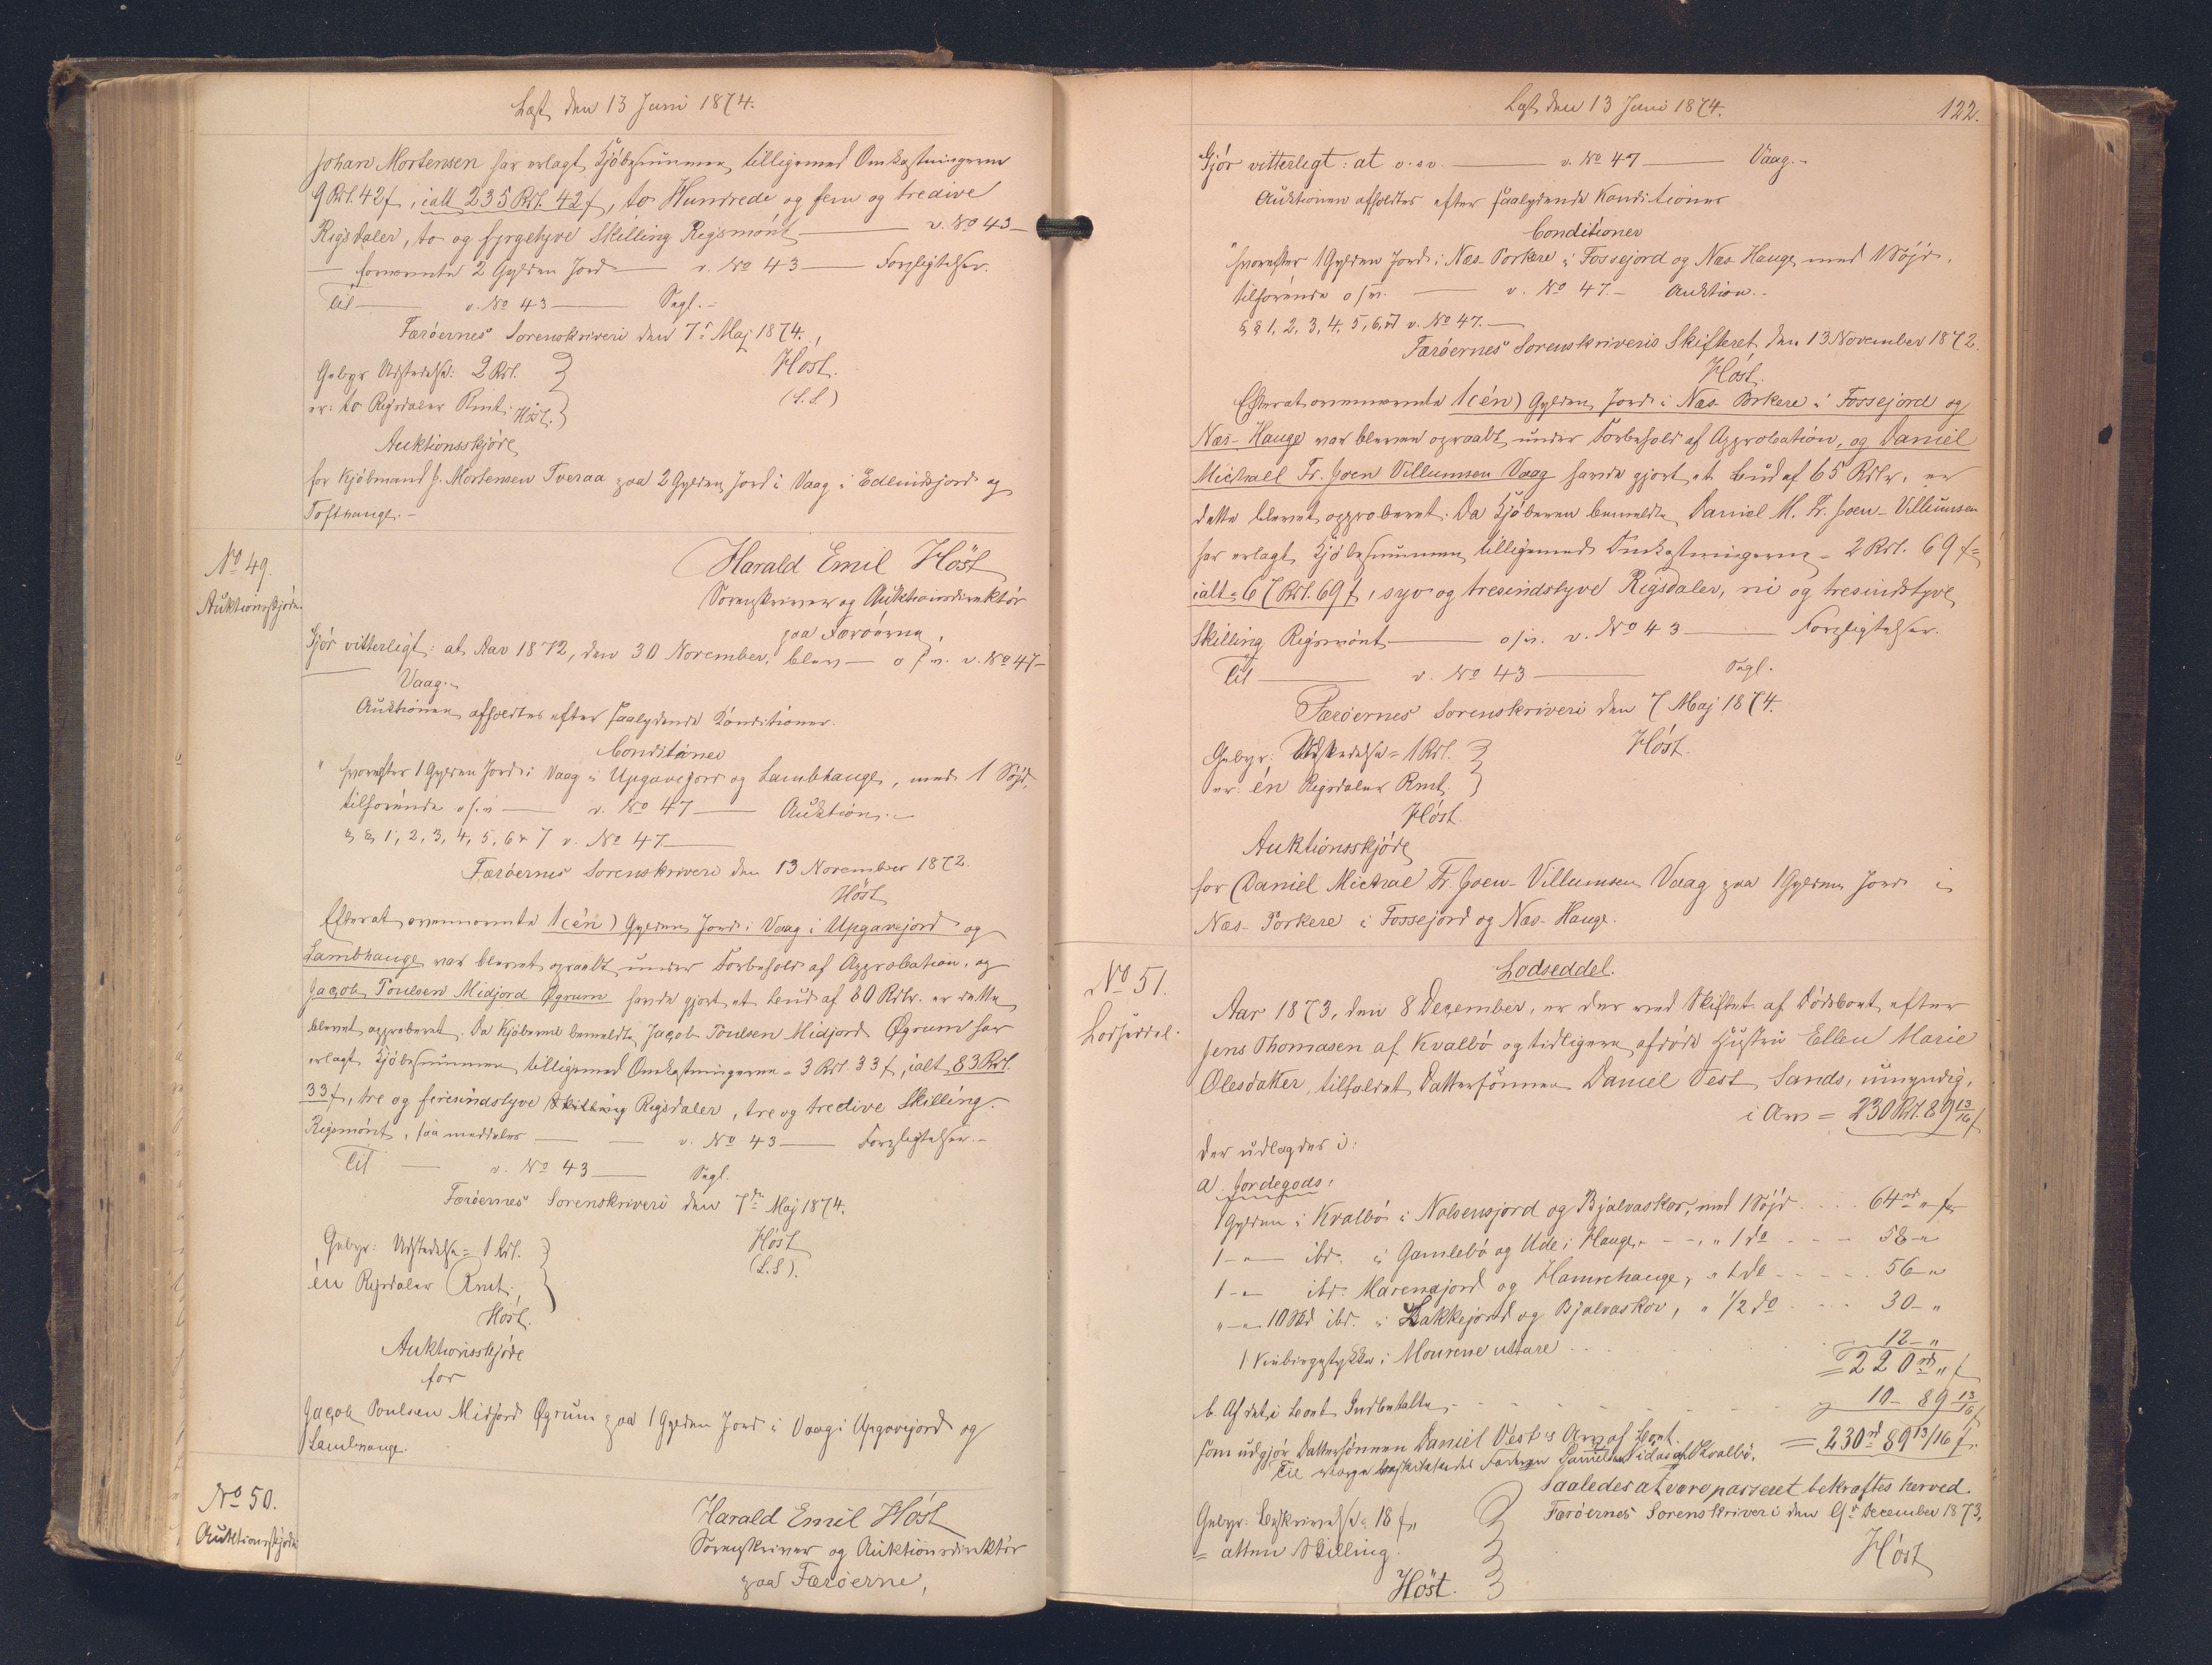 Læst den 13 Juni 1874.
Johan Mortensen har erlagt Kjöbesummen tilligemed Omkostningerne
9 Rdl. 42 f, ialt 235 Rdl. 42 f, to Hundrede og fem og tredive
Rigsdaler, to og fyrgetyve Skilling Rigsmönt — v. No 43 —
— fornævnte 2 Gylden Jord — v. No 43 — Forpligtelser.
Til — v. No 43 — Segl. -
Færöernes Sorenskriveri den 7de Maj 1874.
Gebyr Udstedelse: 2 Rdl.
er: to Rigsdaler Rmt.
Höst.
Höst.
(L.S.)
Auktionsskjöde
for Kjöbmand J. Mortensen Tveraa paa 2 Gylden Jord i Vaag i Edlindsjord og
Tofthauge. -
No 49.
Auktionsskjöde
Harald Emil Höst
Sorenskriver og Auktionsdirektör
paa Færöerne,
Gjör vitterligt: at Aar 1872, den 30 November, blev — o.s.v. v. No 47 —
Vaag. -
Auktionen afholdtes efter saalydende Konditioner.
Conditioner
" hvorefter 1 Gylden Jord i Vaag i Upgavejord og Lambhauge, med 1 Söjd,
tilhörende o.s.v. — v. No 47 — Auktion. -
§ § 1, 2, 3, 4, 5, 6 & 7 v. No 47 —
Færöernes Sorenskriveri den 13 November 1872.
Höst
Efterat ovennævnte 1 (én) Gylden Jord i Vaag i Upgavejord og
Lambhauge var blevet opraabt under Forbehold af Approbation, og
Jacob Poulsen Midjord Øgrum havde gjort et Bud af 80 Rdlr. er dette
blevet approberet. Da Kjöberen bemeldte Jacob Poulsen Midjord Øgrum har
erlagt Kjöbesummen tilligemed Omkostningerne = 3 Rdl. 33 f, ialt 83 Rdl.
33 f, tre og firesindstyve Skilling Rigsdaler, tre og tredive Skilling
Rigsmönt, saa meddeles — — v. No 43 — Forpligtelser. -
Til — v. No 43 — Segl.
Færöernes Sorenskriveri den 7de Maj 1874.
Gebyr: Udstedelse = 1 Rdl.
én Rigsdaler Rmt.
Höst.
Höst
(L.S).
Auktionsskjöde
for
Jacob Poulsen Midjord Øgrum paa 1 Gylden Jord i Vaag i Upgavejord og
Lambhauge.
No 50.
Auktionsskjöde
Harald Emil Höst
Sorenskriver og Auktionsdirektör
paa Færöerne,
Læst den 13 Juni 1874.
122.
Gjör vitterligt: at o.s.v. — v. No 47 — Vaag. -
Auktionen afholdtes efter saalydende Konditioner
Conditioner
" hvorefter 1 Gylden Jord i Næs Porkere i Fossejord og Næs Hauge, med 1 Söjd,
tilhörende o.s.v. — v. No 47. - Auktion. -
§ § 1, 2, 3, 4, 5, 6, 7 v. No 47. —
Færöernes Sorenskriveris Skifteret den 13 November 1872.
Höst.
Efterat ovennævnte 1 (én) Gylden Jord i Næs Porkere i Fossejord og
Næs-Hauge var bleven opraabt under Forbehold af Approbation, og Daniel
Michael Fr. Joen Villumsen Vaag havde gjort et Bud af 65 Rdlr. er
dette blevet approberet. Da Kjöberen bemeldte Daniel M. Fr. Joen-Villumsen
har erlagt Kjöbesummen tilligemed Omkostningerne = 2 Rdl. 69 f =
ialt = 67 Rdl. 69 f, syv og tresindstyve Rigsdaler, ni og tresindstyve
Skilling Rigsmönt — o.s.v. v. No 43 — Forpligtelser.
Til — v. No 43 — Segl.
Færöernes Sorenskriveri den 7 Maj 1874.
Gebyr: Udstedelse = 1 Rdl.
er: én Rigsdaler Rmt.
Höst.
Höst.
Auktionsskjöde
for Daniel Michael Fr. Joen-Villumsen Vaag paa 1 Gylden Jord i
Næs-Porkere i Fossejord og Næs-Hauge.
No 51.
Lodseddel.
Lodseddel.
Aar 1873, den 8 December, er der ved Skiftet af Dödsboet efter
Jens Thomasen af Kvalbö og tidligere afdöde Hustru Ellen Marie
Olesdatter, tilfaldet Dattersönnen Daniel Vest, Sands, umyndig,
i Arv = 230 Rdl. 89 13/16 f
der udlagdes i:
a. Jordegods:
1 Gylden i Kvalbö i Nolsensjord og Bjalvaskor, med 1 Söjd .... 64 rd " f
1 - " - ibd. i Gamlebö og Ude i Hauge, - " 1 do .... 58 - "
1 - " - ibd. Marenajord og Hamrehauge, " 1 do .... 56 - "
" - " 10 Skd ibd. i Bakkejord og Bjalvaskor, " 1/2 do .... 30 - "
1 i Mourene uttare .... 12 - "
= 220 rd " f
b. Af det i Boet Indbetalte, .... 10 - 89 13/16 f
som udgjör Dattersönnen Daniel Vest's Arv af Boet. = 230 rd 89 13/16 f.
Saaledes at være passeret bekræftes herved.
Færöernes Sorenskriveri den 9de December 1873.
Höst
Gebyr: Beskrivelse: 18 f.
= atten Skilling.
Höst.